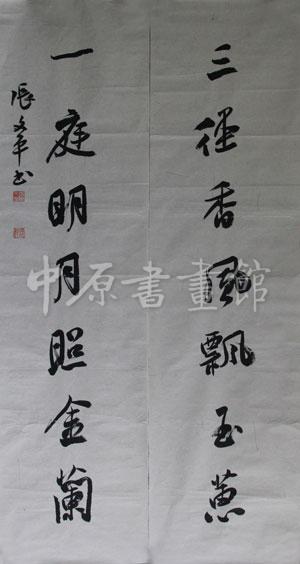 三径香風飄玉蕙
一庭明月照金蘭
張文平书
中原書畫館